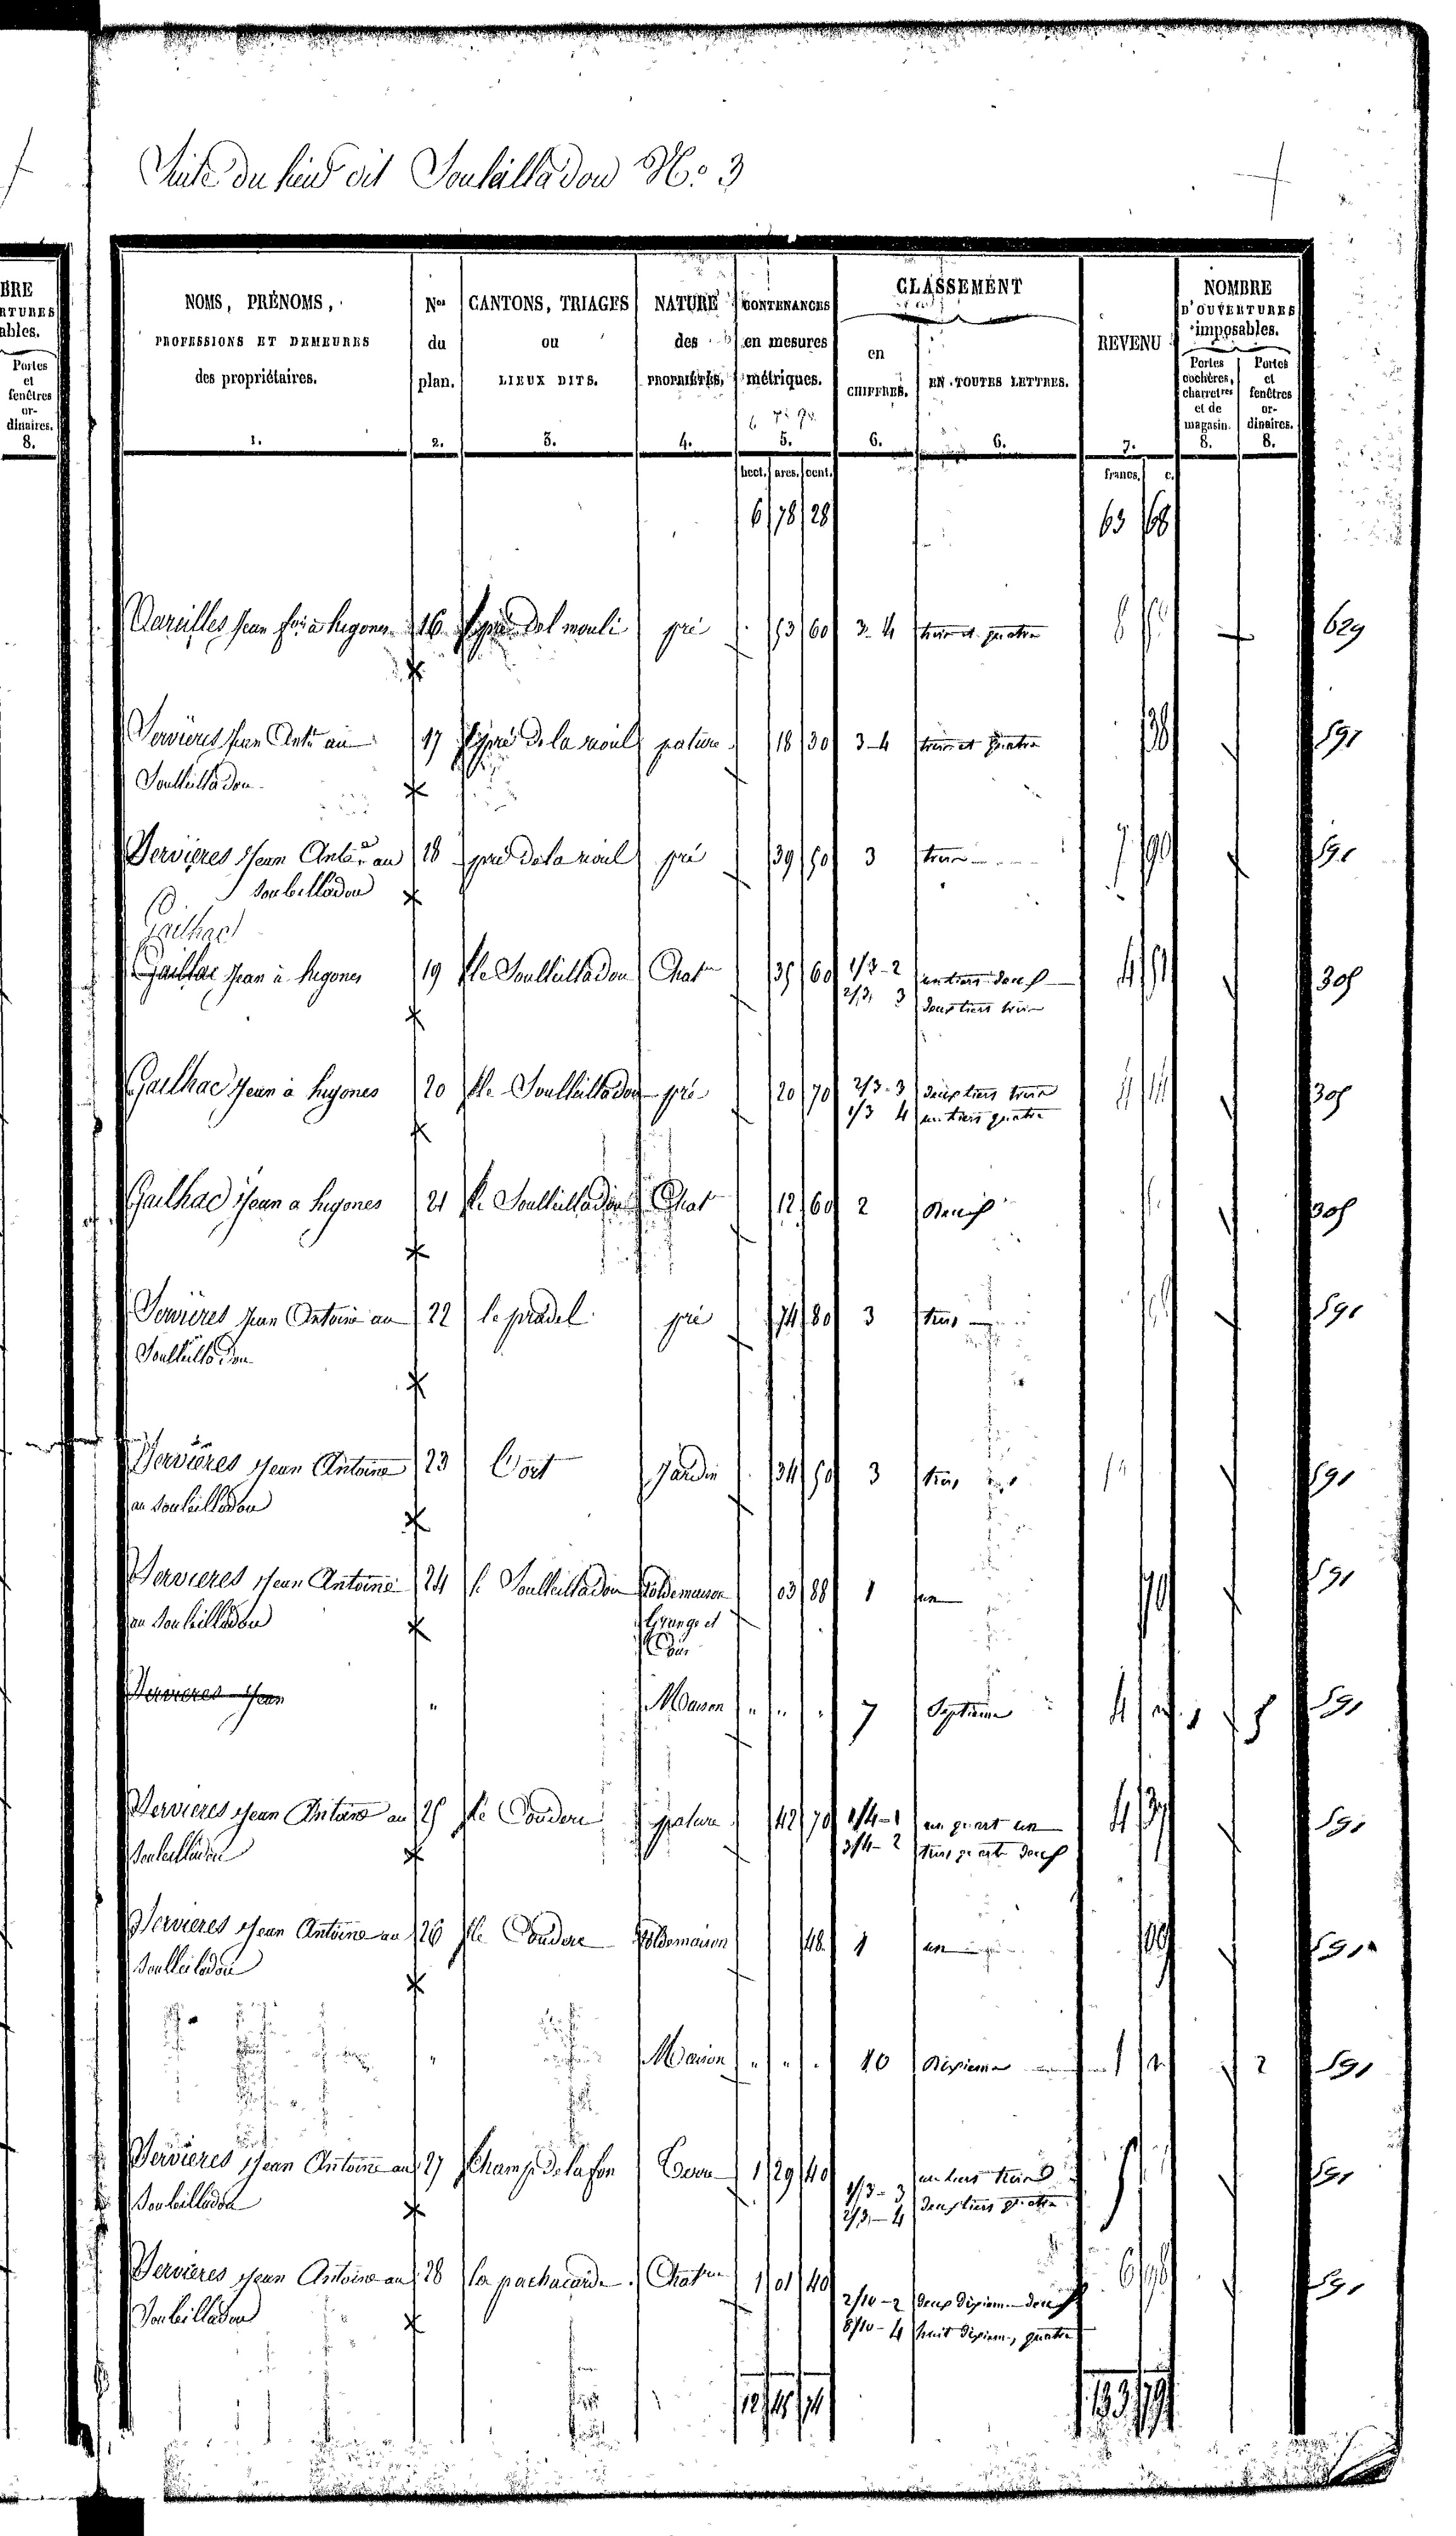 Suite du lieu dit Souleilladou N.o 3
BRE
RTURES
ables.
Portes
et
fenêtres
or-
dinaires.
8.
NOMS, PRÉNOMS,
PROFESSIONS ET DEMEURES
des propriétaires.
1.
Nos
du
plan.
2.
CANTONS, TRIAGES
ou
LIEUX DITS.
3.
NATURE
des
PROPRIÉTÉS,
4.
CONTENANCES
en mesures
métriques.
5.
CLASSEMENT
en
CHIFFRES.
6.
EN TOUTES LETTRES.
6.
REVENU
7.
NOMBRE
D'OUVERTURES
imposables.
Portes
cochères,
charretres
et de
magasin.
8.
Portes
et
fenêtres
or-
dinaires.
8.
hect. ares. cent. francs. c.
6 78 28 63 68
Vareilles Jean à hugones 16 pré del mouli pré 53 60 3-4 trois et quatre 629
Servières Jean Ante au 17 pré de la raoul pature 18 30 3-4 trois et quatre 38 591
Soulleilladou
Servières Jean Ante au 18 pré de la raoul pré 39 50 3 trois 7 90 591
Souleilladou
Gailhac
Gaillac Jean à hugones 19 le Soulleilladou Chatm 35 60 1/3-2 un tiers deux 4 51 305
2/3 3 deux tiers trois
Gailhac Jean à hugones 20 le Soulleilladou pré 20 70 2/3-3 deux tiers trois 305
1/3 4 un tiers quatre
Gailhac Jean a hugones 21 le Soulleilladou Chat 12 60 2 deux 305
Servières Jean Antoine au 22 le pradel pré 74 80 3 trois 591
Soulleilladou
Servières Jean Antoine 23 l'ort Jardin 34 50 3 trois 591
au Souleilladou
Servieres Jean Antoine 24 le Soulleilladou Sol de maison 03 88 1 un 70 591
au Souleilladou Grange et
Cour
Servieres Jean " Maison " " " 7 Septieme 4 " 1 5 591
Servieres Jean Antoine au 25 le Couderc pature 42 70 1/4-1 un quart un 4 37 591
Souleilladou 3/4-2 trois quarts deux
Servieres Jean Antoine au 26 le Couderc Sol de maison 48 1 un 09 591
Soulleiladou
" Maison " " " 10 dixieme 1 " 2 591
Servières Jean Antoine au 27 Champ de la fon Terre 1 29 40 1/3-3 un tiers trois 591
Souleilladou 2/3-4 deux tiers quatre
Servières Jean Antoine au 28 la pachacarde Chatm 1 01 40 2/10-2 deux dixiemes deux 6 98 591
Souleilladou 8/10-4 huit dixiemes, quatre
12 45 74 133 79